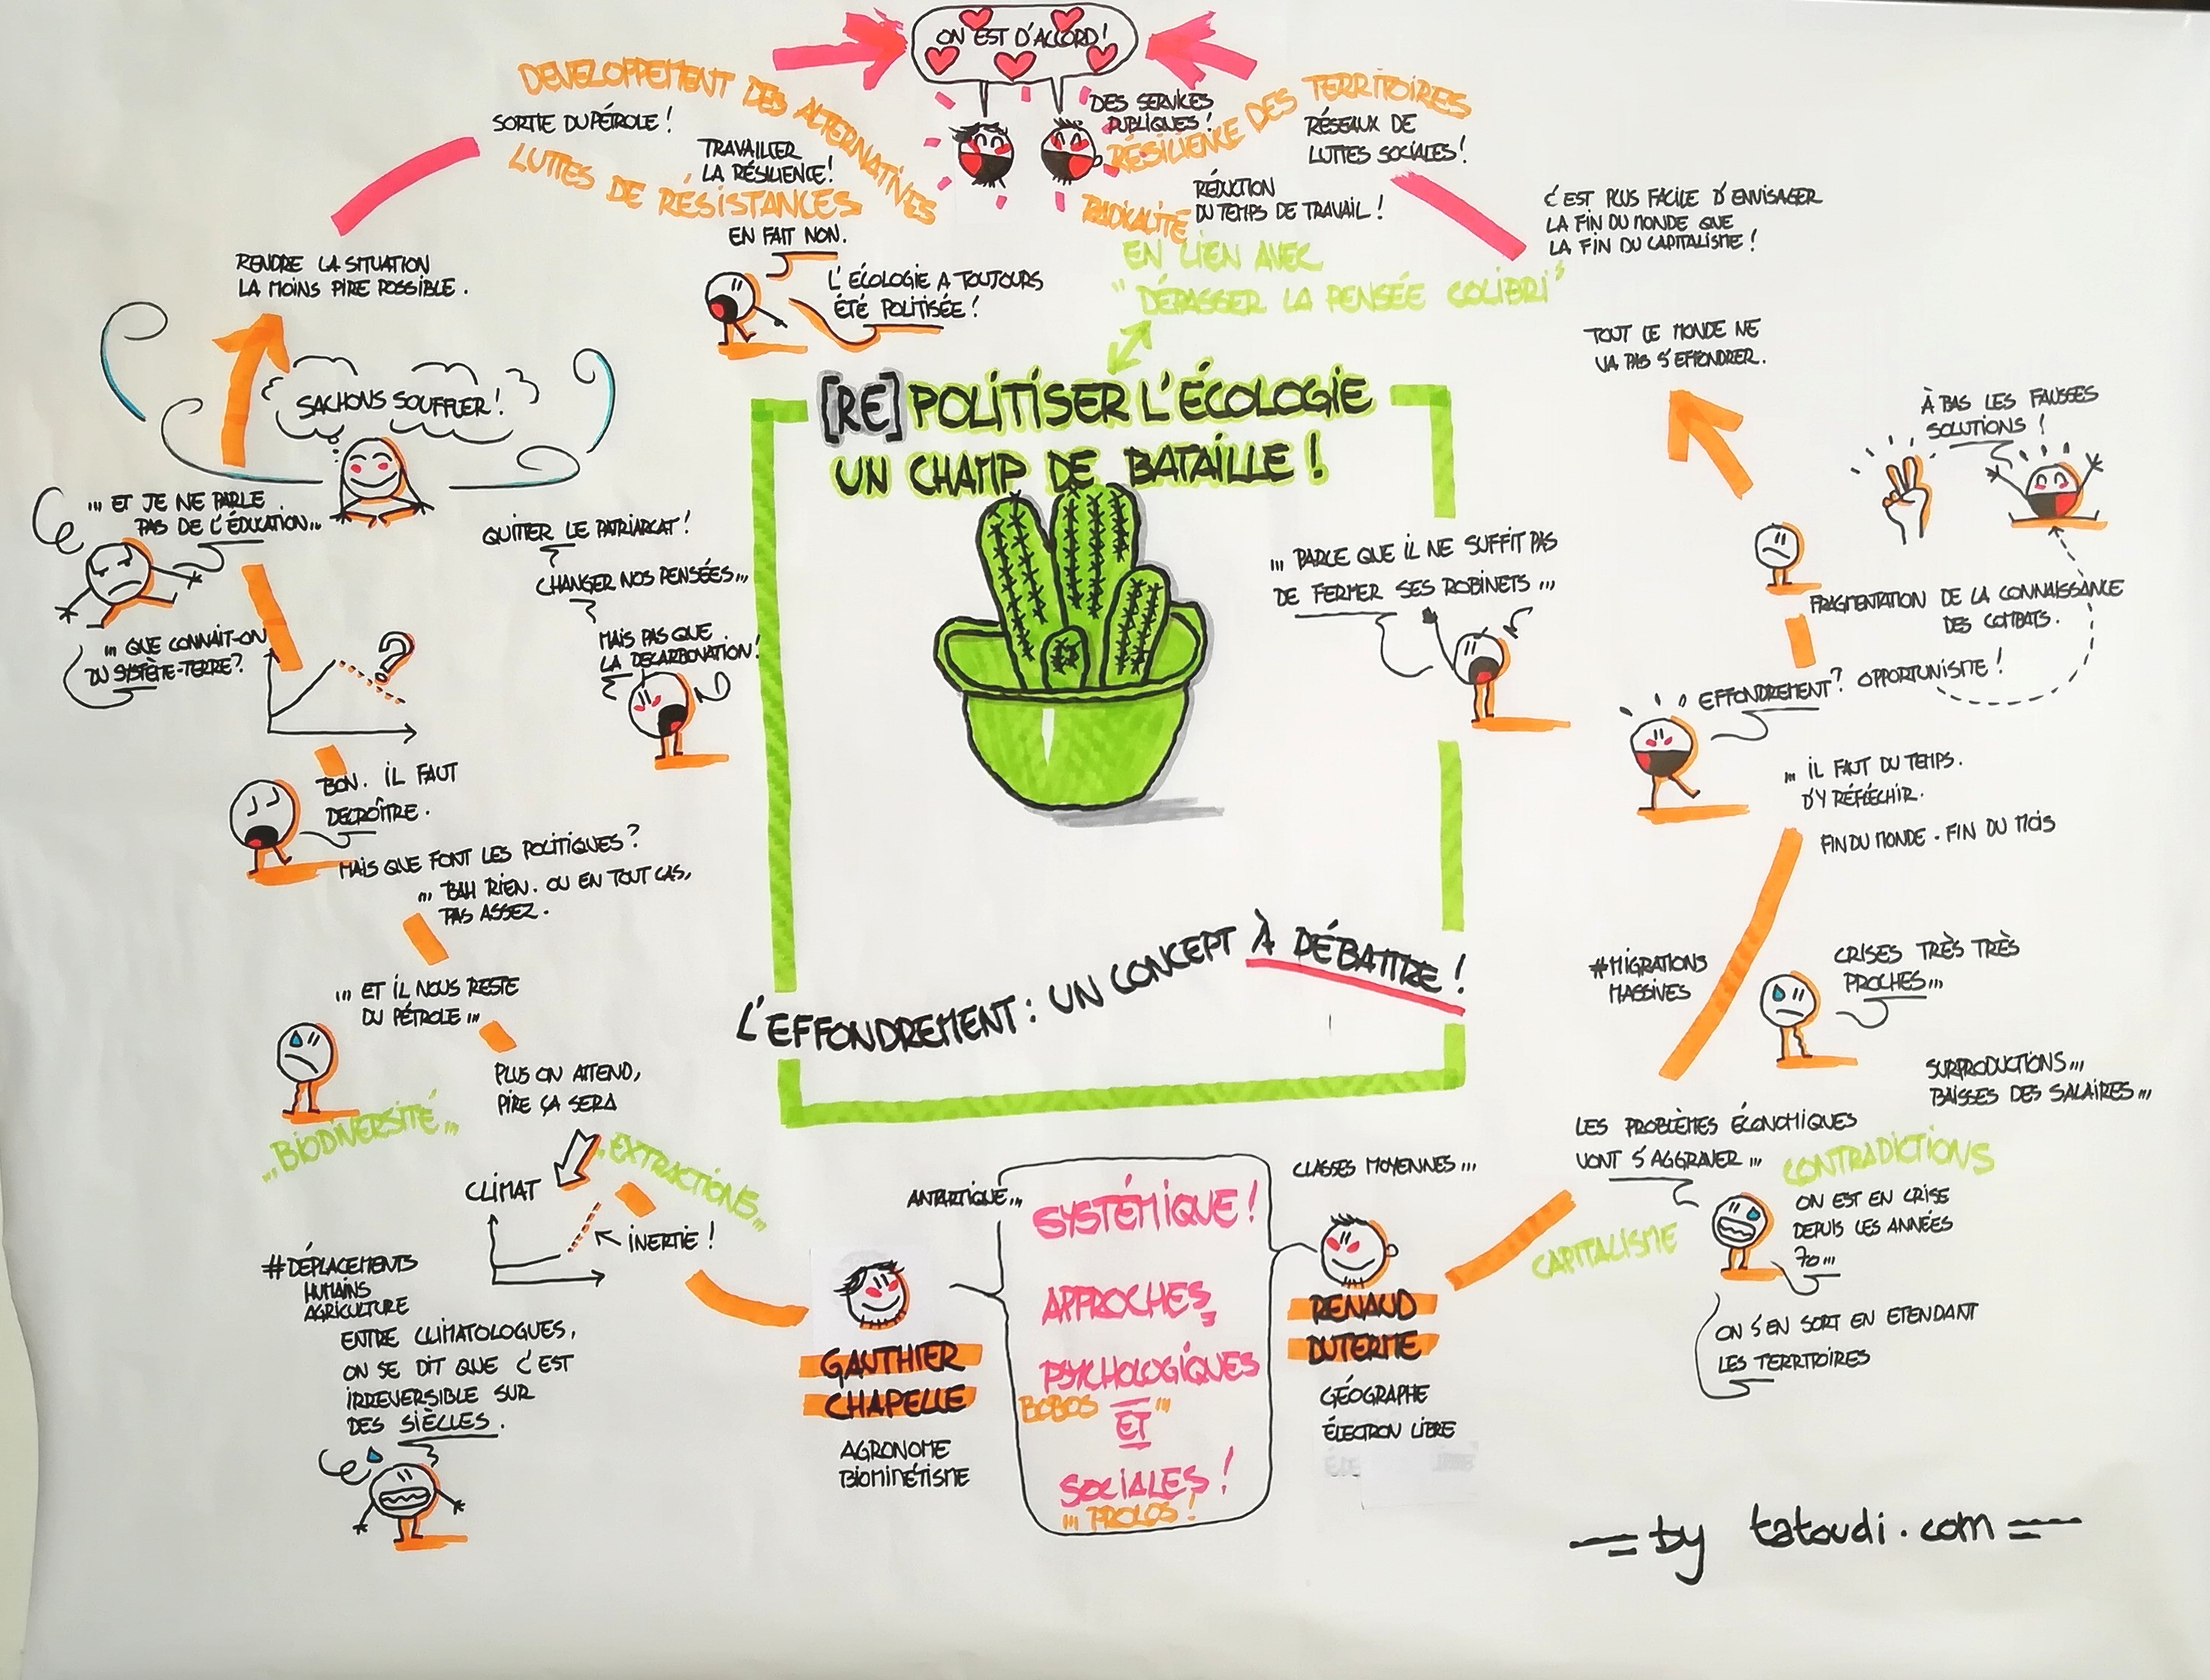 ON EST D'ACCORD!
DEVELOPPEMENT DES ALTERNATIVES
SORTIE DU PÉTROLE!
TRAVAILLER
LA RÉSILIENCE!
LUTTES DE RÉSISTANCES
DES SERVICES
PUBLIQUES!
RÉSILIENCE DES TERRITOIRES
RÉSEAUX DE
LUTTES SOCIALES!
RADICALITÉ
RÉDUCTION
DU TEMPS DE TRAVAIL!
EN LIEN AVEC
"DÉPASSER LA PENSÉE COLIBRI"
C'EST PLUS FACILE D'ENVISAGER
LA FIN DU MONDE QUE
LA FIN DU CAPITALISME!
EN FAIT NON.
L'ÉCOLOGIE A TOUJOURS
ÉTÉ POLITISÉE!
RENDRE LA SITUATION
LA MOINS PIRE POSSIBLE.
SACHONS SOUFFLER!
... ET JE NE PARLE
PAS DE L'ÉDUCATION...
... QUE CONNAIT-ON
DU SYSTÈTE-TERRE?
?
QUITTER LE PATRIARCAT!
CHANGER NOS PENSÉES...
MAIS PAS QUE
LA DECARBONATION!
BON. IL FAUT
DECROÎTRE.
MAIS QUE FONT LES POLITIQUES?
... BAH RIEN. OU EN TOUT CAS,
PAS ASSEZ.
... ET IL NOUS RESTE
DU PÉTROLE...
PLUS ON ATTEND,
PIRE ÇA SERA
...BIODIVERSITÉ...
...EXTRACTIONS...
CLIMAT
INERTIE!
#DÉPLACEMENTS
HUMAINS
AGRICULTURE
ENTRE CLIMATOLOGUES,
ON SE DIT QUE C'EST
IRREVERSIBLE SUR
DES SIÈCLES.
[RE]POLITISER L'ÉCOLOGIE
UN CHAMP DE BATAILLE!
L'EFFONDREMENT: UN CONCEPT À DÉBATTRE!
... PARCE QUE IL NE SUFFIT PAS
DE FERMER SES ROBINETS...
TOUT LE MONDE NE
VA PAS S'EFFONDRER.
À BAS LES FAUSSES
SOLUTIONS!
FRAGMENTATION DE LA CONNAISSANCE
DES COMBATS.
EFFONDREMENT? OPPORTUNISTE!
... IL FAUT DU TEMPS.
D'Y RÉFLÉCHIR.
FIN DU MONDE - FIN DU MOIS
#MIGRATIONS
MASSIVES
CRISES TRÈS TRÈS
PROCHES...
SURPRODUCTIONS...
BAISSES DES SALAIRES...
LES PROBLÈMES ÉCONOMIQUES
VONT S'AGGRAVER...
CONTRADICTIONS
CAPITALISME
ON EST EN CRISE
DEPUIS LES ANNÉES
70...
ON S'EN SORT EN ETENDANT
LES TERRITOIRES
ANTARTIQUE...
CLASSES MOYENNES...
SYSTÉMIQUE!
APPROCHES
PSYCHOLOGIQUES
BOBOS...
ET
SOCIALES!
... PROLOS!
GAUTHIER
CHAPELLE
AGRONOME
BIOMIMÉTISME
RENAUD
DUTERME
GÉOGRAPHE
ÉLECTRON LIBRE
by tatoudi.com